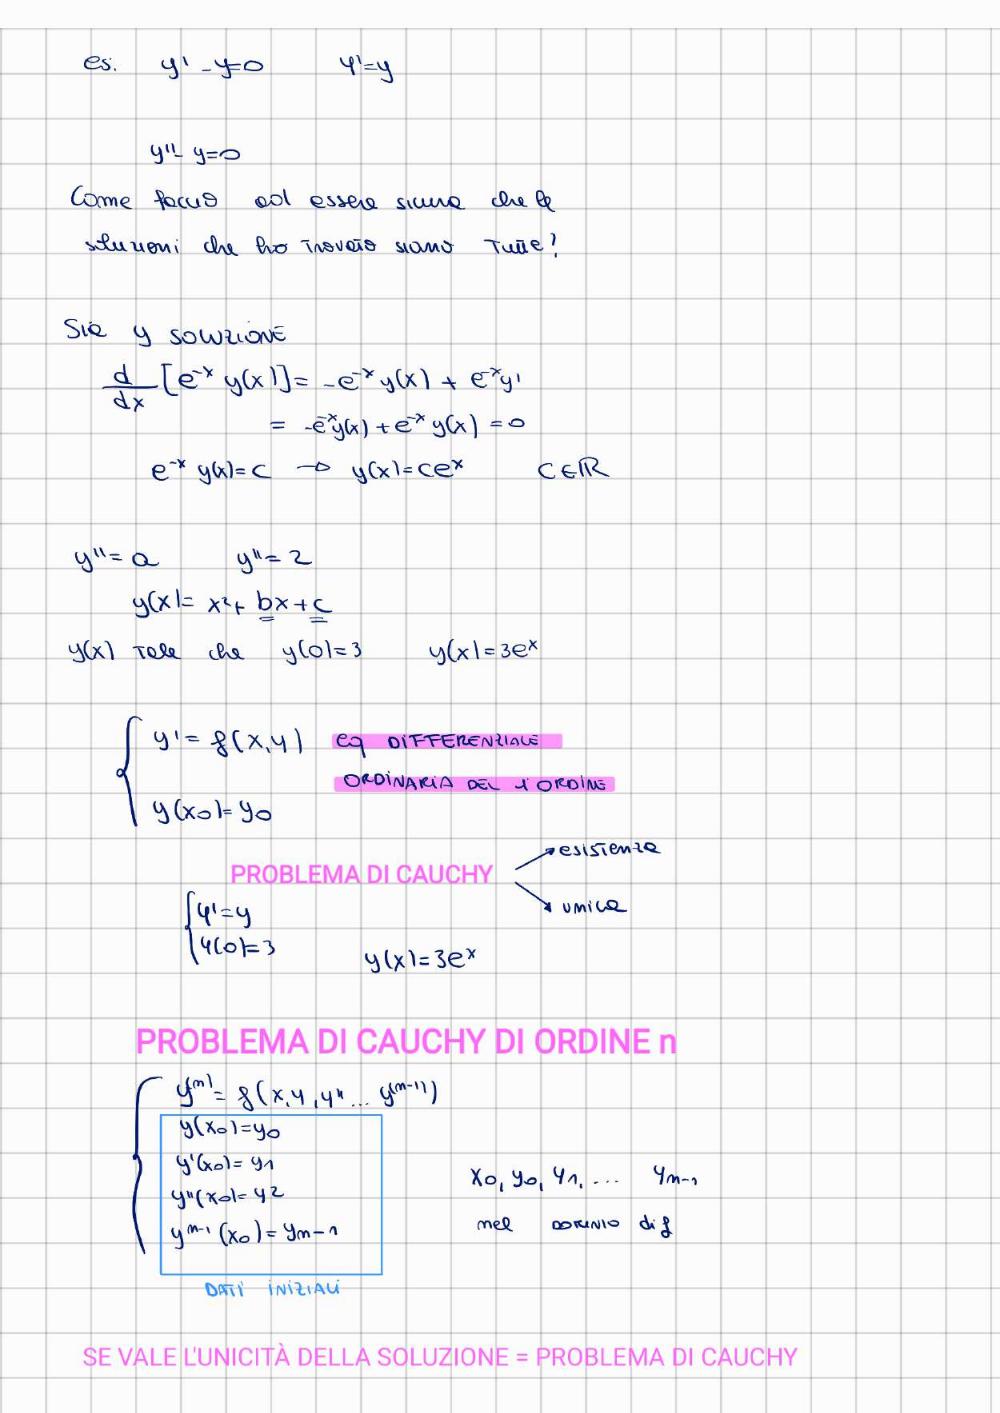 es. y' - y=0 y'=y
y''- y=0
Come faccio ad essere sicura che le
soluzioni che ho trovato siano tutte?
Sia y SOLUZIONE
d/dx [e⁻ˣ y(x)] = -e⁻ˣ y(x) + e⁻ˣy'
= -e⁻ˣy(x) + e⁻ˣ y(x) = 0
e⁻ˣ y(x) = c → y(x) = ceˣ C∈ℝ
y'' = a y'' = 2
y(x) = x² + bx + c
y(x) tale che y(0)=3 y(x)=3eˣ
y' = f(x,y) eq DIFFERENZIALE
ORDINARIA DEL 1° ORDINE
y(x₀) = y₀
esistenza
PROBLEMA DI CAUCHY
unica
y'=y
y(0)=3
y(x)=3eˣ
PROBLEMA DI CAUCHY DI ORDINE n
y⁽ⁿ⁾ = f(x,y,y'' ... y⁽ⁿ⁻¹⁾)
y(x₀)=y₀
y'(x₀)=y₁
y''(x₀)=y2
yⁿ⁻¹(x₀)=yn-1
x₀, y₀, y₁, ... yn-1
nel DOMINIO di f
DATI INIZIALI
SE VALE L'UNICITÀ DELLA SOLUZIONE = PROBLEMA DI CAUCHY